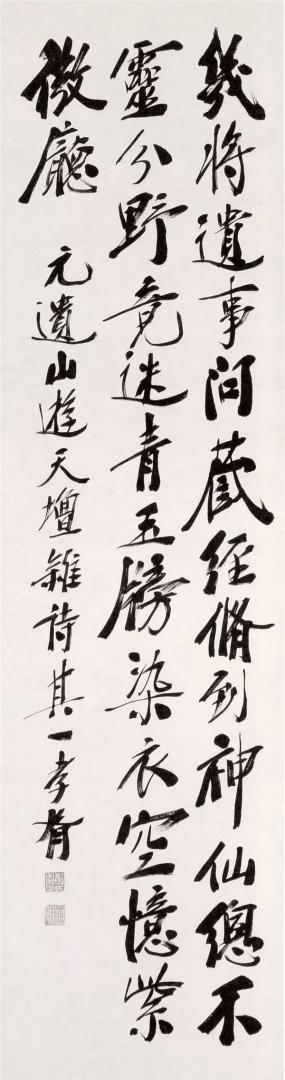 幾將遺事問藏經脩到神仙總不
靈分野竟迷青玉牓染衣空憶紫
微廳
元遺山遊天壇雜詩其一孝胥